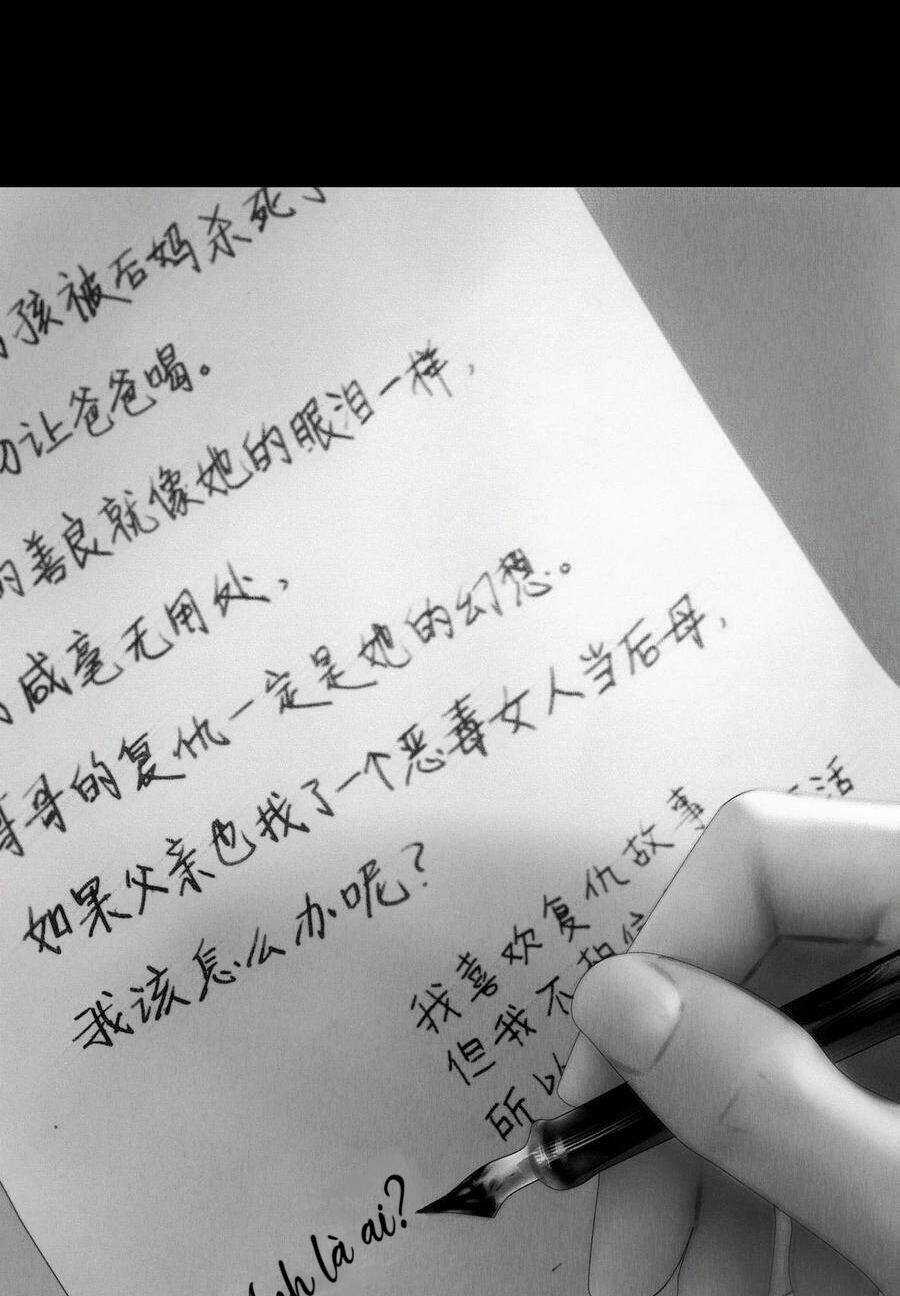 孩被后妈杀死了
让爸爸喝。
的善良就像她的眼泪一样，
咸毫无用处，
哥哥的复仇一定是她的幻想。
如果父亲也找了一个恶毒女人当后母，
我该怎么办呢？
我喜欢复仇故事 活
但我不相信
所以
là ai?